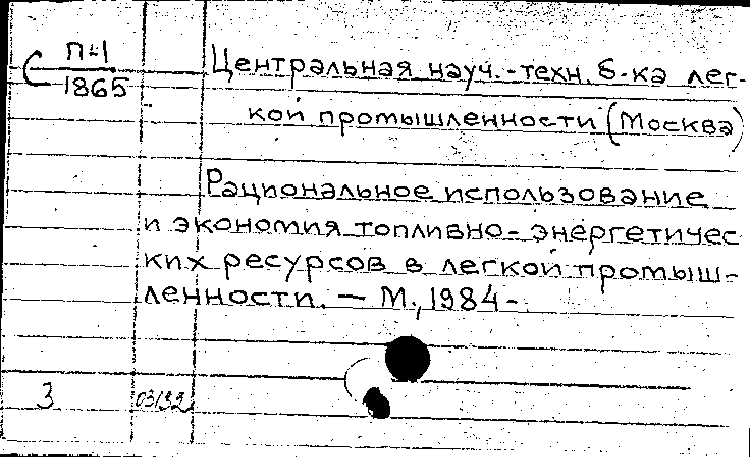 С П-1
1865
Центральная науч.-техн. б-ка лег-
кой промышленности (Москва)
Рациональное использование
и экономия топливно-энергетичес
ких ресурсов в легкой промыш-
ленности. — М., 1984-
3